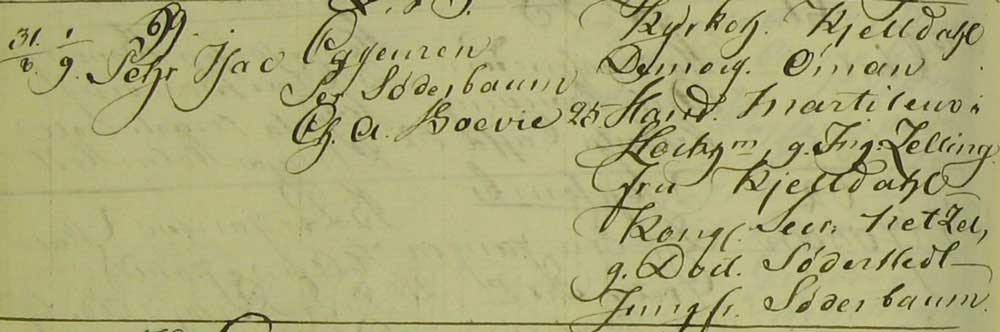 69.
31/8. 1/9. Pehr Isac
Eggeuren
Per Söderbaum
Ch. A. Boevie 25.
Kyrkoh. Kjelldahl
Demois. Öman
Hand. Martileus i
Stockhm, g. Ing. Zelling
fru Kjelldahl
Kongl. Secr. Netzel,
g. Dod. Söderstedt
Jungfr. Söderbaum.